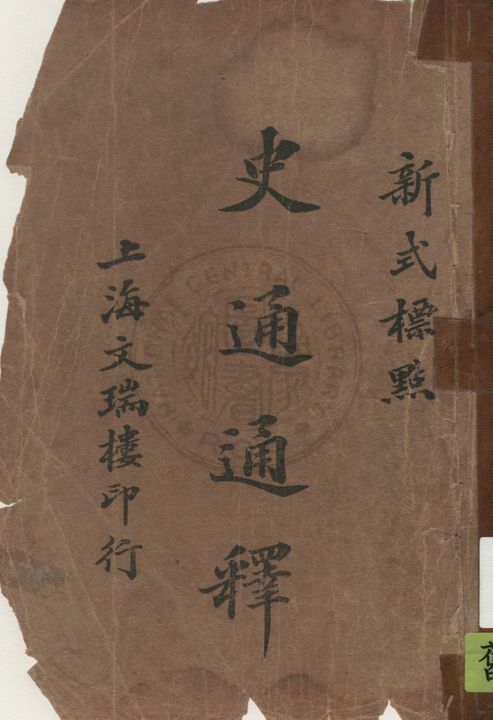 新式標點
史通通釋
上海文瑞樓印行
舊